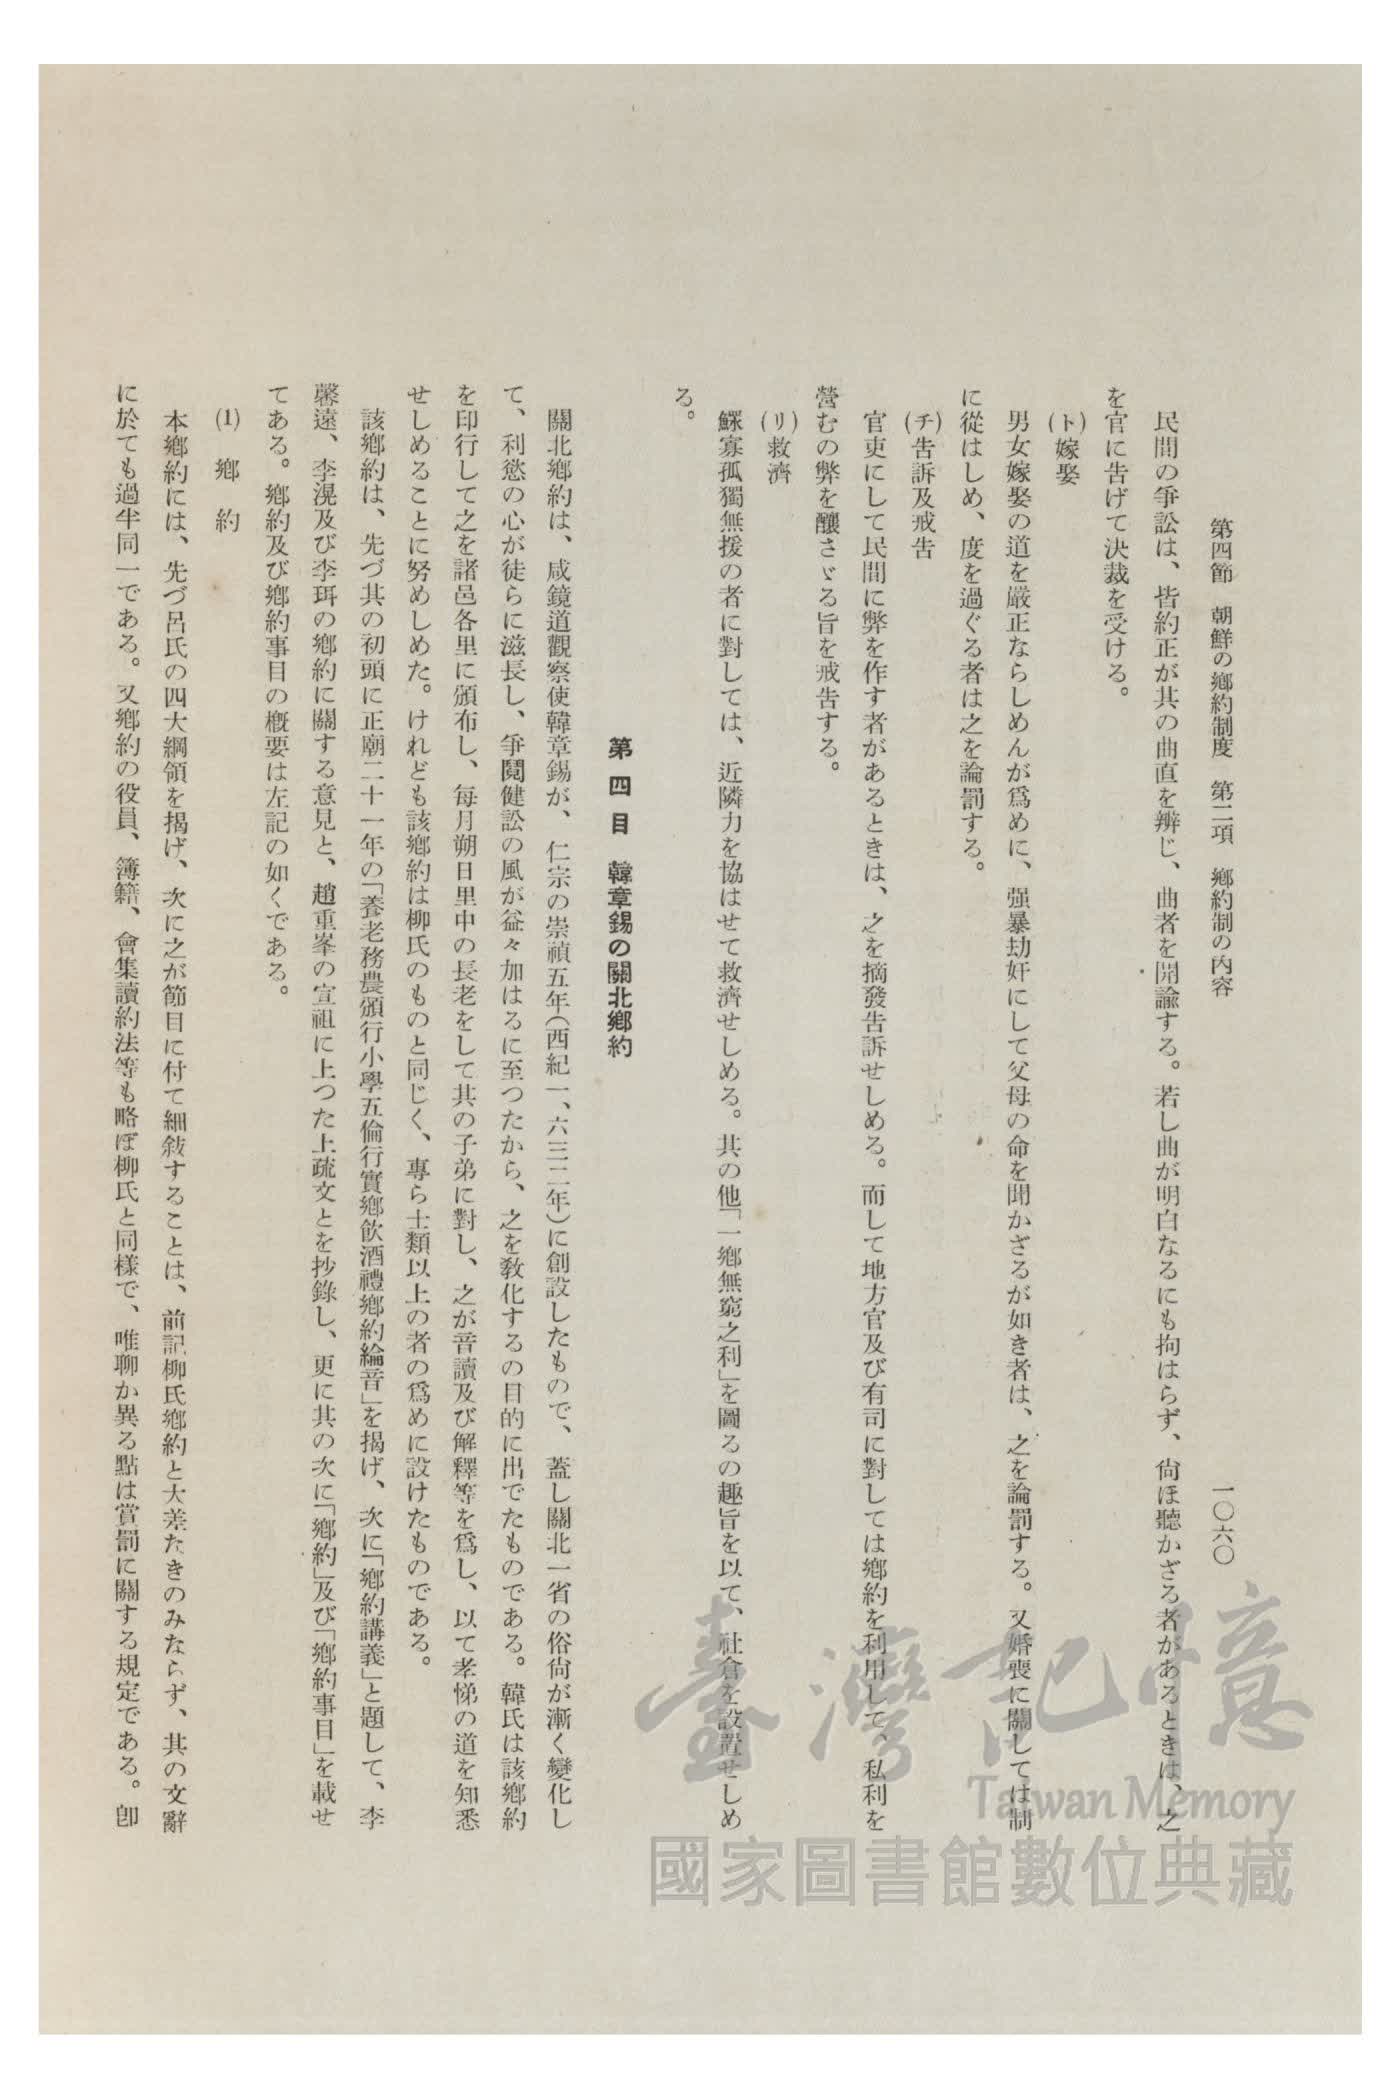 第四節　朝鮮の鄕約制度　第二項　鄕約制の內容　一〇六〇
民間の爭訟は、皆約正が其の曲直を辨じ、曲者を開諭する。若し曲が明白なるにも拘はらず、尙ほ聽かざる者があるときは、之
を官に告げて決裁を受ける。
(ト)嫁娶
男女嫁娶の道を嚴正ならしめんが爲めに、强暴劫奸にして父母の命を聞かざるが如き者は、之を論罰する。又婚喪に關しては制
に從はしめ、度を過ぐる者は之を論罰する。
(チ)告訴及戒告
官吏にして民間に弊を作す者があるときは、之を摘發告訴せしめる。而して地方官及び有司に對しては鄕約を利用して、私利を
營むの弊を釀さゞる旨を戒告する。
(リ)救濟
鰥寡孤獨無援の者に對しては、近隣力を協はせて救濟せしめる。其の他「一鄕無窮之利」を圖るの趣旨を以て、社倉を設置せしめ
る。
第四目　韓章錫の關北鄕約
關北鄕約は、咸鏡道觀察使韓章錫が、仁宗の崇禎五年(西紀一、六三二年)に創設したもので、蓋し關北一省の俗尙が漸く變化し
て、利慾の心が徒らに滋長し、爭鬩健訟の風が益々加はるに至つたから、之を敎化するの目的に出でたものである。韓氏は該鄕約
を印行して之を諸邑各里に頒布し、每月朔日里中の長老をして其の子弟に對し、之が音讀及び解釋等を爲し、以て孝悌の道を知悉
せしめることに努めしめた。けれども該鄕約は柳氏のものと同じく、專ら士類以上の者の爲めに設けたものである。
該鄕約は、先づ其の初頭に正廟二十一年の「養老務農頒行小學五倫行實鄕飮酒禮鄕約綸音」を揭げ、次に「鄕約講義」と題して、李
馨遠、李滉及び李珥の鄕約に關する意見と、趙重峯の宣祖に上つた上疏文とを抄錄し、更に其の次に「鄕約」及び「鄕約事目」を載せ
てある。鄕約及び鄕約事目の槪要は左記の如くである。
(1)　鄕　約
本鄕約には、先づ呂氏の四大綱領を揭げ、次に之が節目に付て細敍することは、前記柳氏鄕約と大差なきのみならず、其の文辭
に於ても過半同一である。又鄕約の役員、簿籍、會集讀約法等も略ぼ柳氏と同樣で、唯聊か異る點は賞罰に關する規定である。卽
臺灣記憶
Taiwan Memory
國家圖書館數位典藏